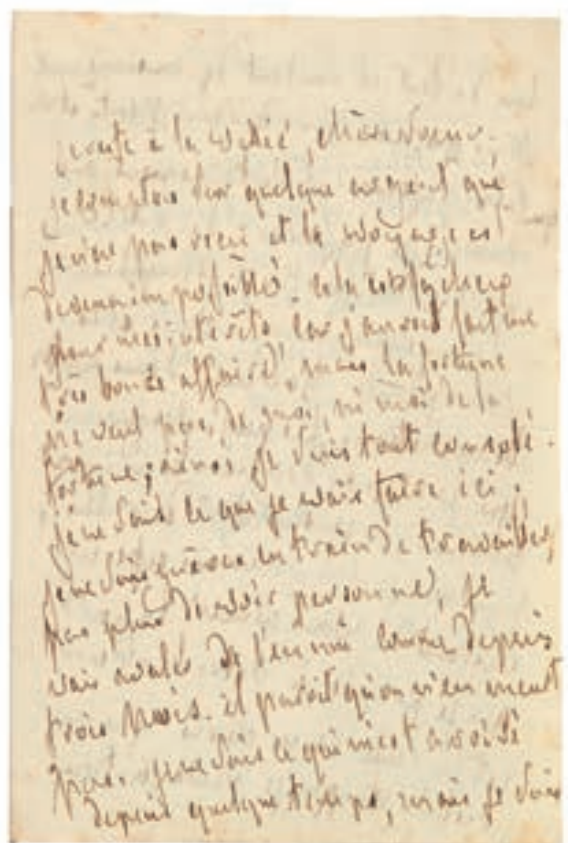 je reste à la ville, chère Soeur.
je comptais sur quelque argent que
je n'ai pas reçu et le voyage est
devenu impossible. cela est fâcheux
pour mes intérêts car j'aurais fait une
très bonne affaire, mais la fortune
ne veut pas de moi, ni moi de la
fortune; ainsi je suis tout consolé.
je ne sais ce que je vais faire ici.
je ne suis guères en train de travailler,
pas plus de voir personne, je
vais avaler de l'ennui comme depuis
trois mois. il paroit qu'on n'en meurt
pas. je ne sais ce qui m'est arrivé
depuis quelque temps, mais je suis